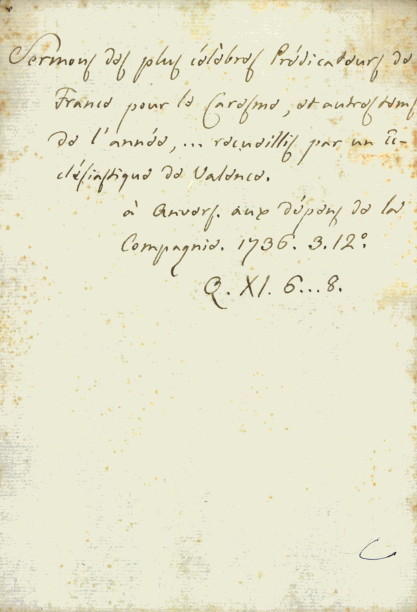 Sermons des plus célèbres Prédicateurs de
France pour le Caresme, et autres tems
de l'année, ... recueillis par un Ec-
clésiastique de Valence.
à Anvers. aux dépens de la
Compagnie. 1736. 3. 12°.
Q. XI. 6...8.